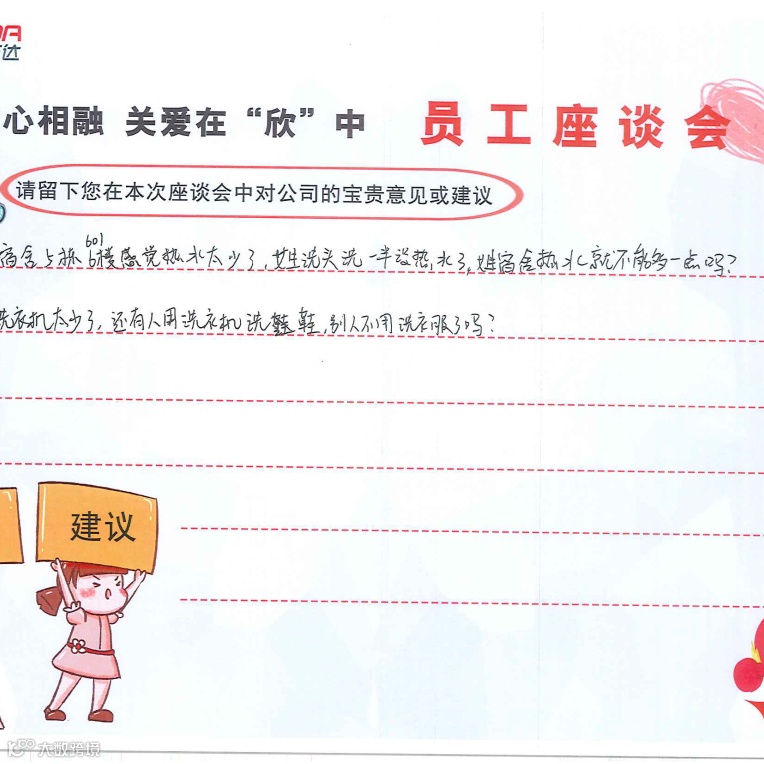 DA
达
心相融 关爱在“欣”中 员工座谈会
请留下您在本次座谈会中对公司的宝贵意见或建议
601
宿舍5栋6楼感觉热水太少了,女生洗头洗一半没热水了,姐宿舍热水就不能多一点吗?
洗衣机太少了,还有人用洗衣机洗鞋,别人不用洗衣服了吗?
建议
大数跨境